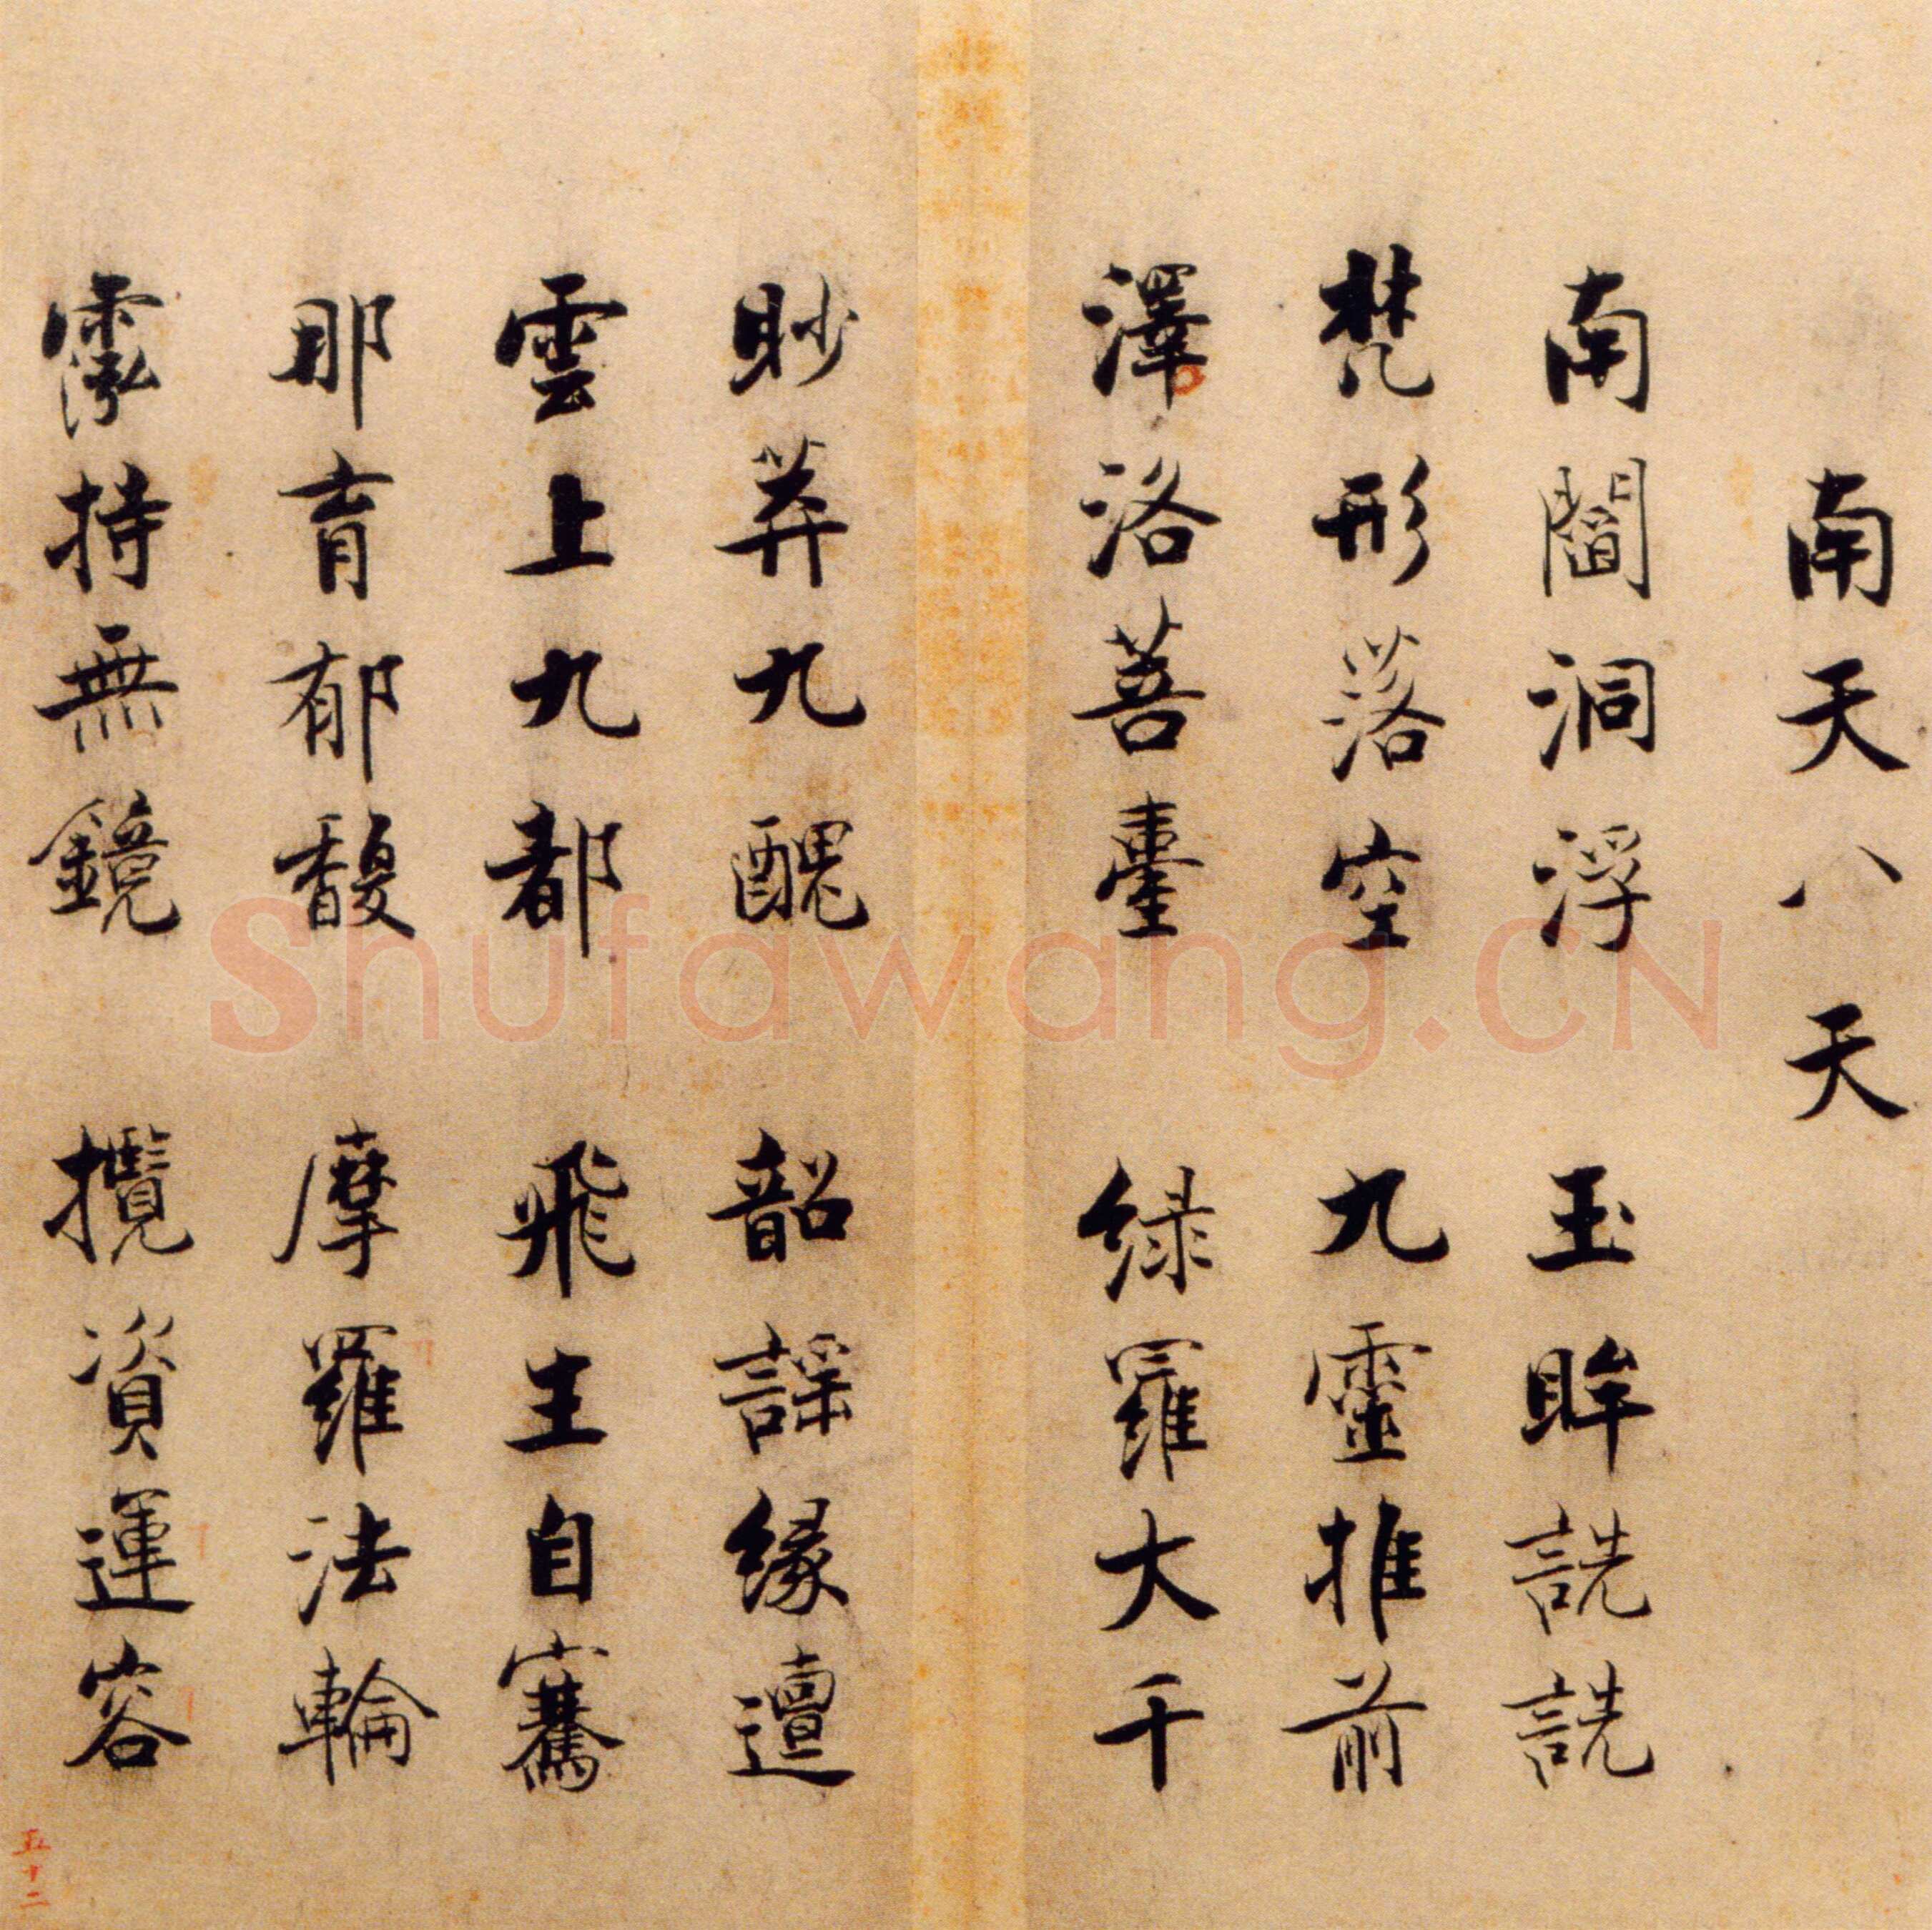 南天八天
南閻洞浮 玉眸詵詵
梵形落空 九靈推前
澤洛菩臺 綠羅大千
眇莽九醜 韶謡緣邅
雲上九都 飛主自騫
那育郁馥 摩羅法輪
霐持無鏡 攬資運容
五十二
Shufawang.CN